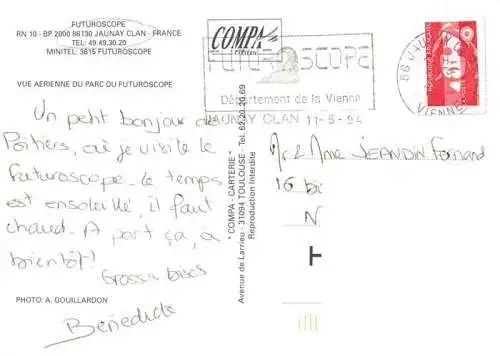 FUTUROSCOPE
RN 10 - BP 2000 86130 JAUNAY CLAN - FRANCE
TEL: 49.49.30.20
MINITEL: 3615 FUTUROSCOPE
VUE AERIENNE DU PARC DU FUTUROSCOPE
Un petit bonjour de
Poitiers, où je visite le
Futuroscope. le temps
est ensoleillé, il faut
chaud. A part ça, à
bientôt!
Grosses bises
Bénédicte
PHOTO: A. GOUILLARDON
COMPA
CARTERIE
FUTUROSCOPE
Département de la Vienne
JAUNAY CLAN 11-5-94
" COMPA - CARTERIE "
Avenue de Larrieu - 31094 TOULOUSE - Tel. 62.20.20.69
Reproduction Interdite
86 JAUNAY CLAN
VIENNE
REPUBLIQUE FRANÇAISE
Mr & Mme JEANDIN Fernand
16 bis
N